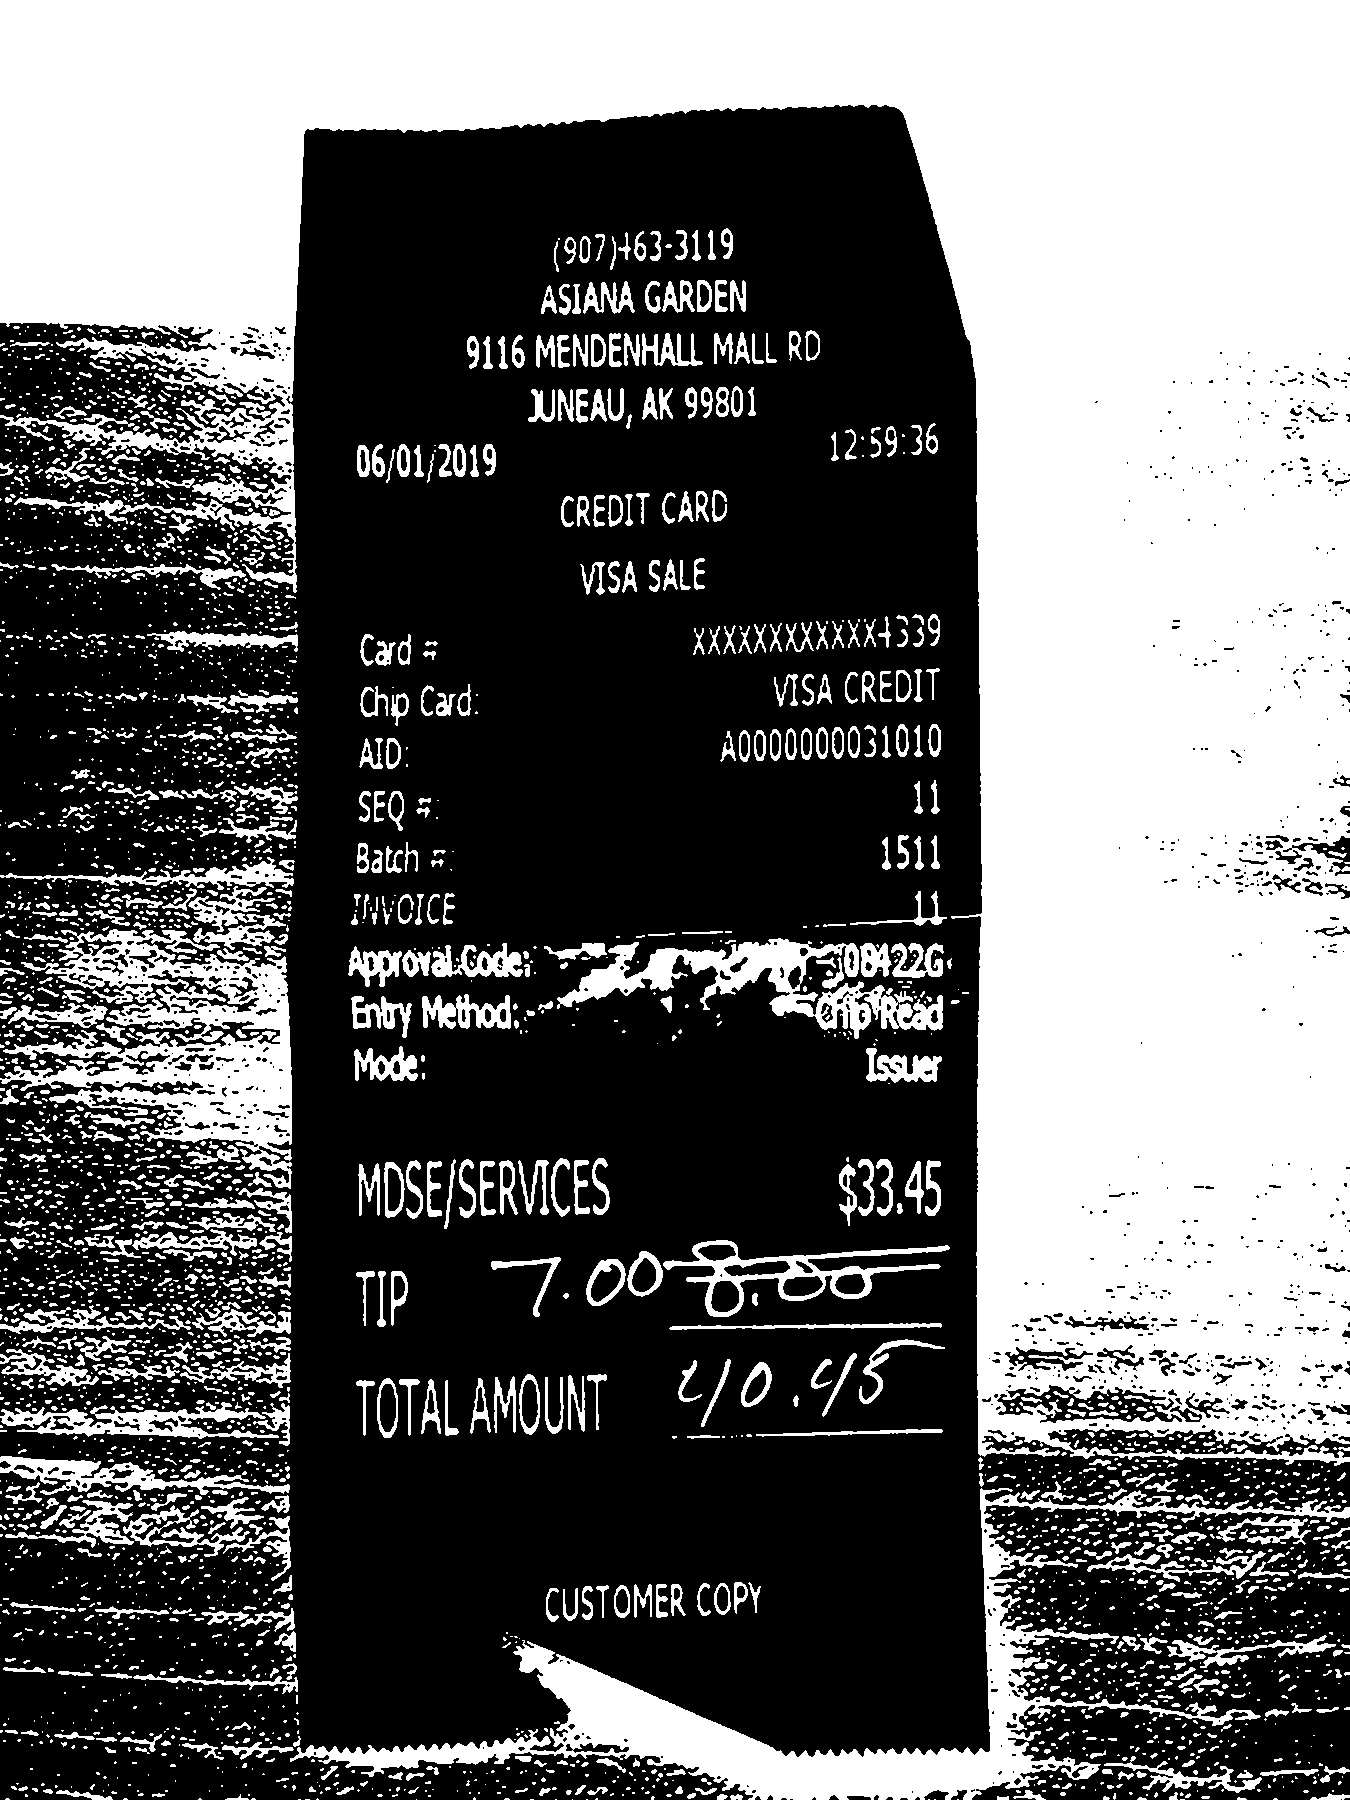 (907)463-3119
ASIANA GARDEN
9116 MENDENHALL MALL RD
JUNEAU, AK 99801
06/01/2019 12:59:36
CREDIT CARD
VISA SALE
Card # XXXXXXXXXXXX4339
Chip Card: VISA CREDIT
AID: A0000000031010
SEQ #: 11
Batch #: 1511
INVOICE 11
Approval Code: 08422G
Entry Method: Chip Read
Mode: Issuer
MDSE/SERVICES $33.45
TIP 7.00 8.00
TOTAL AMOUNT 40.45
CUSTOMER COPY